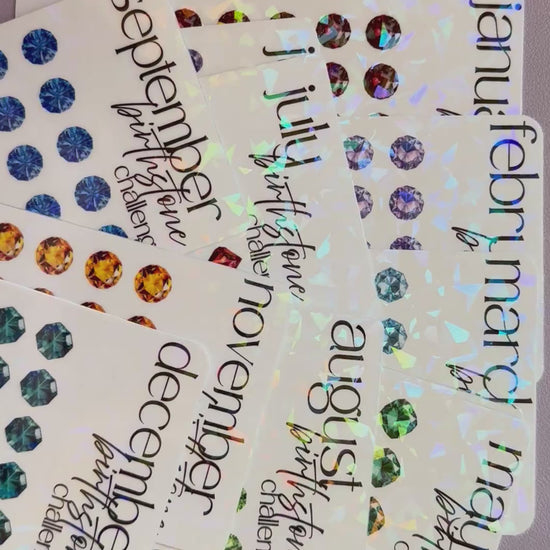 september
birthstone
challenge
j
july
birthstone
challe
janua
b
febru
b
marc
bi
may
birt
august
birthstone
challen
november
december
birthstone
challen